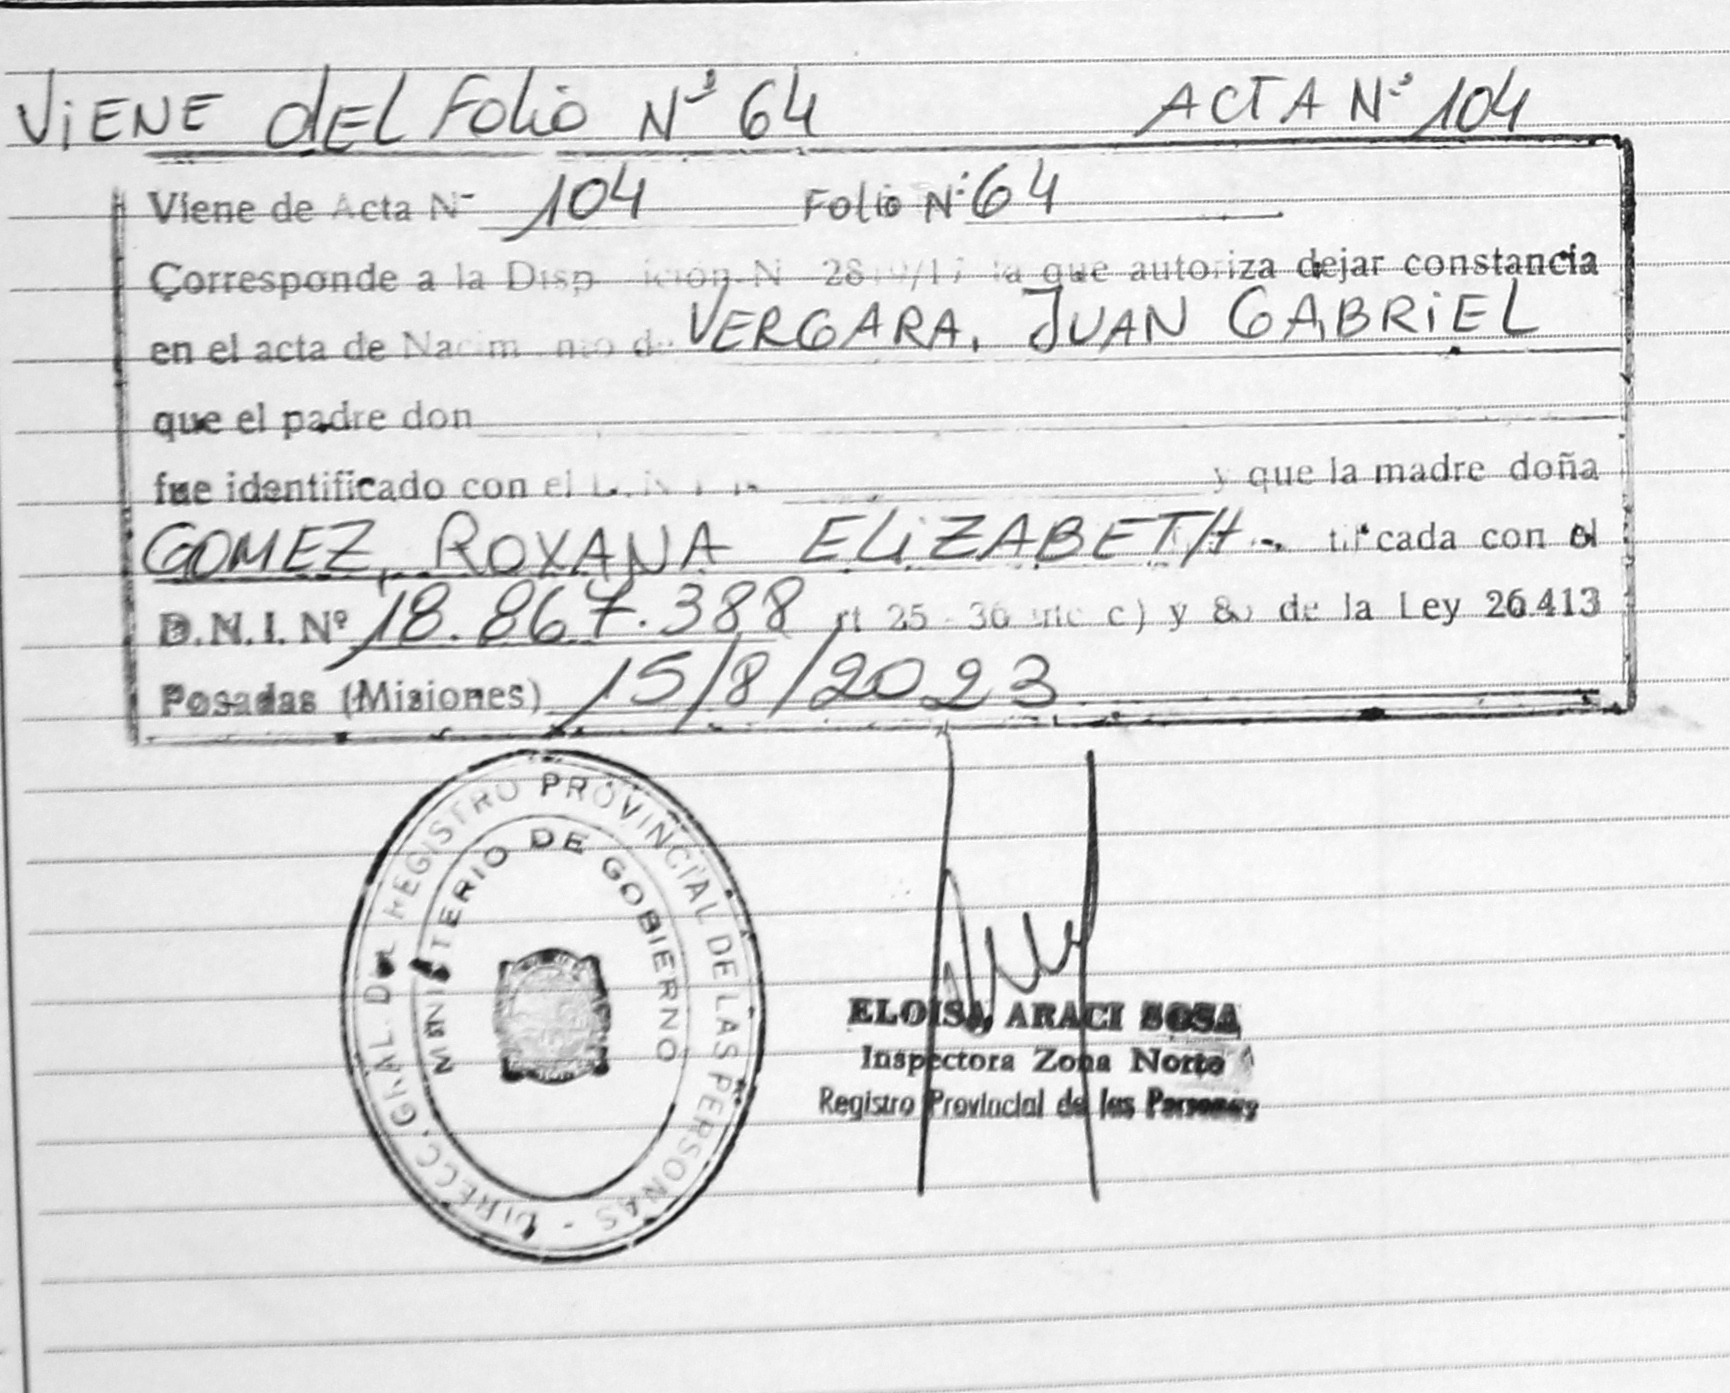 ViENE dEL Folio Nº 64 ACTA Nº 104
Viene de Acta Nº 104 Folio Nº 64
Corresponde a la Disp ición N 28 /17 la que autoriza dejar constancia
en el acta de Nacim nto de VERGARA, JUAN GABRiEL
que el padre don
fue identificado con el y que la madre doña
GOMEZ, ROXANA ELiZABETH. tif cada con el
D.N.I. Nº 18.867.388 rt 25 - 36 inc c) y 8 de la Ley 26.413
Posadas (Misiones) 15/8/2023
DIRECC. GRAL. DEL REGISTRO PROVINCIAL DE LAS PERSONAS -
MINISTERIO DE GOBIERNO
ELOISA ARACI SOSA
Inspectora Zona Norte
Registro Provincial de las Personas